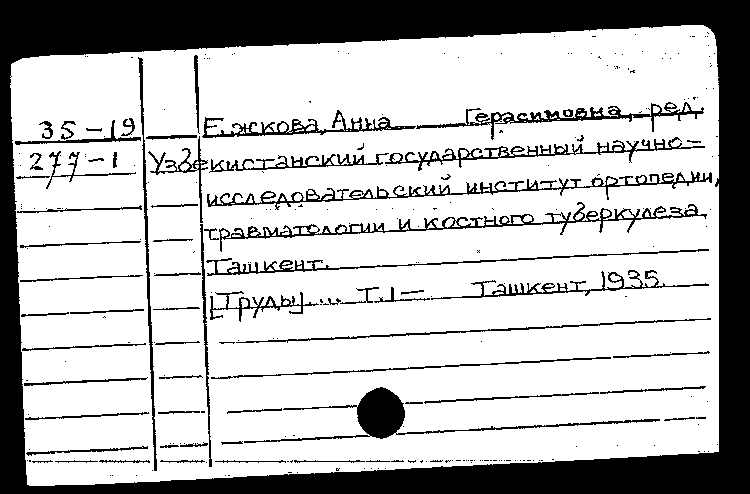 35-19 Ежкова, Анна Герасимовна, ред.
277-1 Узбекистанский государственный научно=
исследовательский институт ортопедии,
травматологии и костного туберкулеза.
Ташкент.
[Труды]... Т.1— Ташкент, 1935.